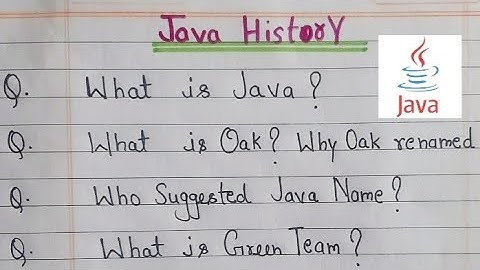 Java History
Java
Q. What is Java?
Q. What is Oak? Why Oak renamed
Q. Who Suggested Java Name?
Q. What is Green Team?